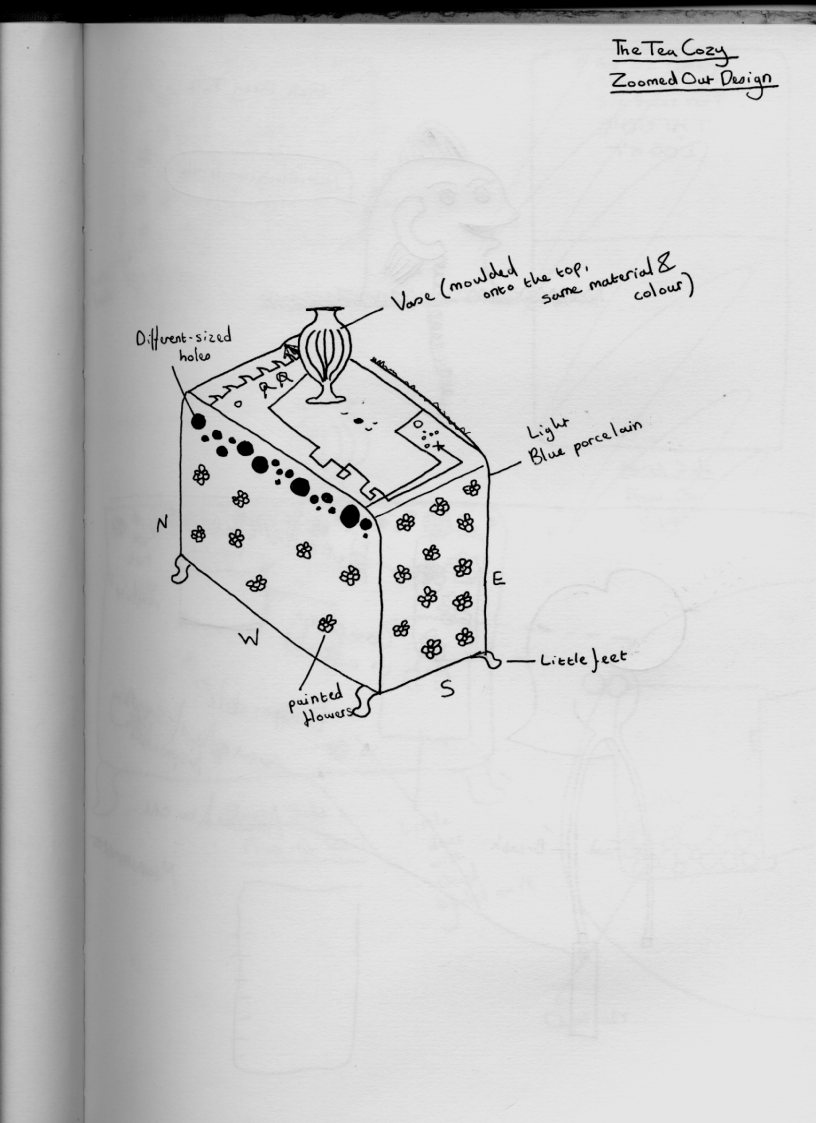 The Tea Cozy
Zoomed Out Design
Vase (moulded
onto the top,
same material &
colour)
Different-sized
holes
Light
Blue porcelain
N
E
W
S
Little feet
painted
flowers